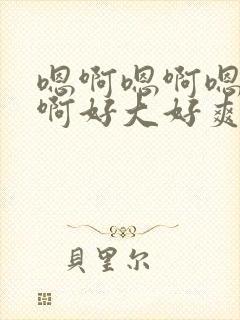 嗯啊嗯啊嗯
啊好大好爽
貝里尔